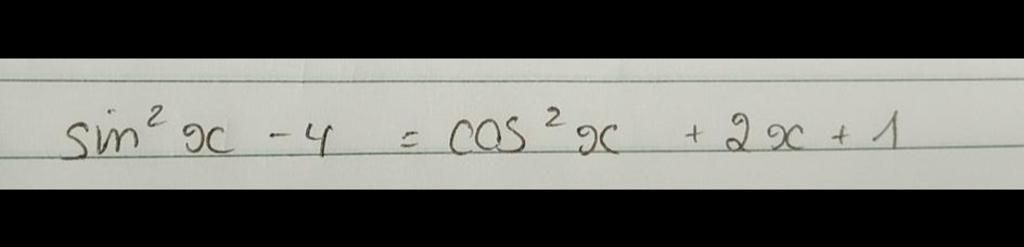 sin² x - 4 = cos² x + 2x + 1